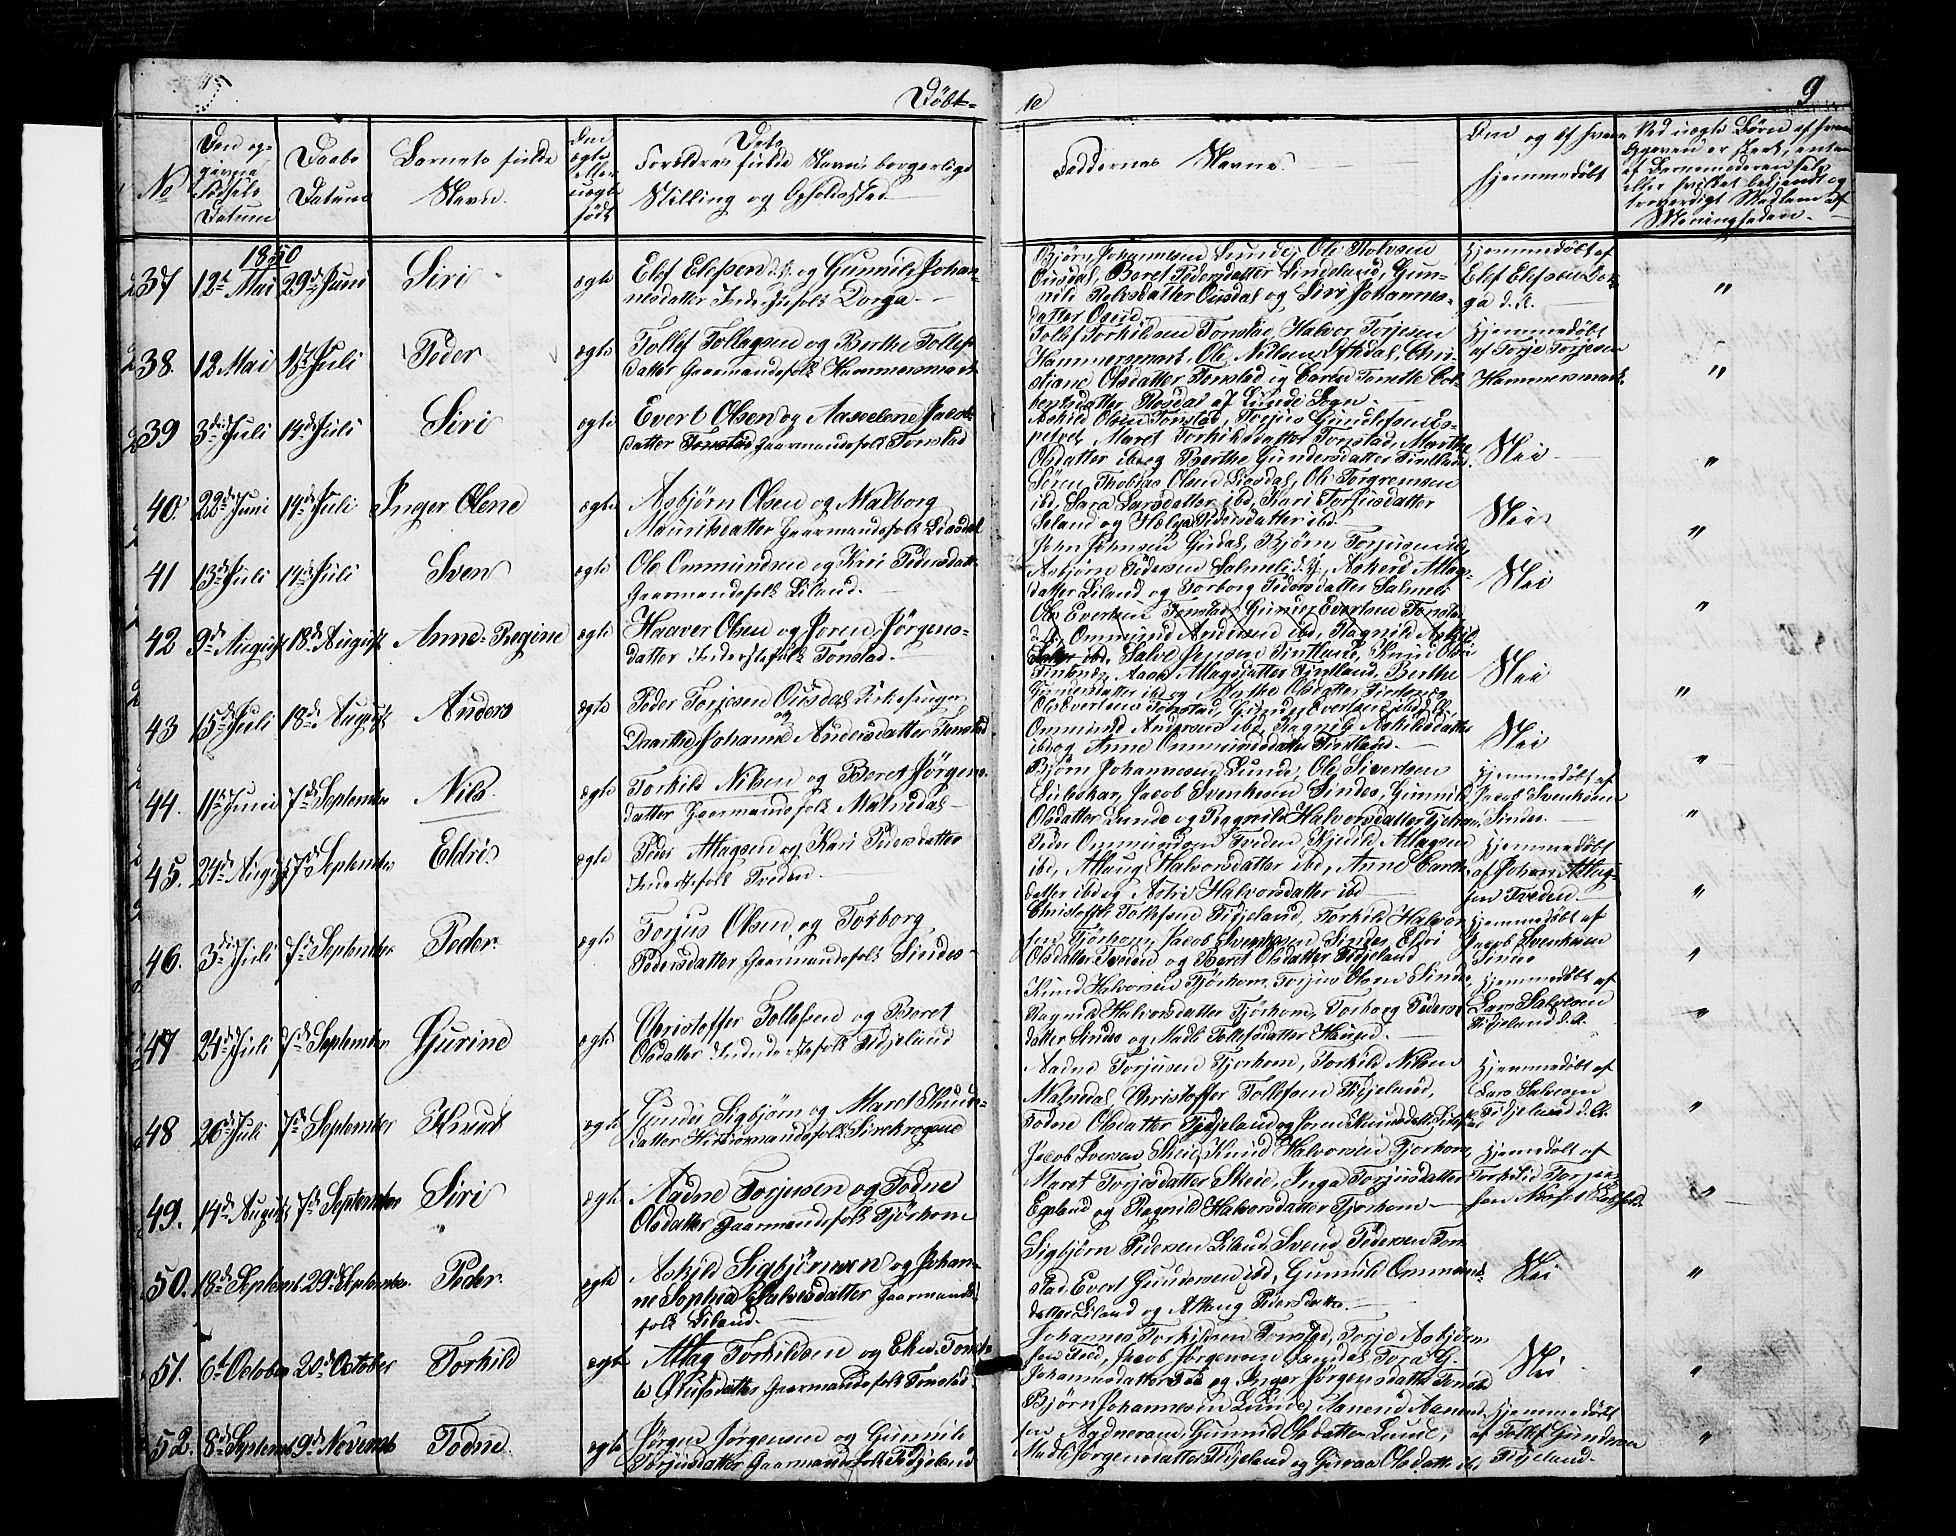 Døbt-
te
9
No
Den op-
givne
Fødsels
Datum
Daabs
Datum
Barnets fulde
Navn.
Om
ægte
eller
uægte
født
Dets
Forældres fulde Navn, borgerlige
Stilling og Opholdssted
Faddernes Navne.
Om og af hvem
hjemmedøbt
Ved uægte Børn af hvem
Opgaven er skeet, enten
af Barnemoderen selv
eller hvilket bekjendt og
troværdigt Medlem af
Menigheden.
1850
37 12te Mai 29de Juni Siri ægte
Elef Elefsen d.Y. og Gunnild Johan-
nesdatter Inderstefolk Dorga.
Bjørn Johannesen Lunde, Ole Rolvsen
Ousdal, Beret Pedersdatter Sindeland, Gun-
nild Rolvsdatter Ousdal og Siri Johannes-
datter Ovid
Hjemmedøbt af
Elef Elefsen Dor-
ga d. Æ.
"
38. 12 Mai 1ste Juli Peder ægte
Tollef Tollagsen og Berthe Tollefs-
datter Gaarmandsfolk Hammersmark
Tollef Torkildsen Tonstad, Halvor Torjesen
Hammersmark, Ole Nielsen Eftedal, Chri-
stiane Olsdatter Tonstad og Caren Tonette Col-
bentsdatter Rosdal af Lunde Sogn.
Hjemmedøbt
af Torje Torjesen
Hammersmark.
"
39 3die Juli 14de Juli Siri ægte
Evert Olsen og Aaselene Jacobs-
datter Gaarmandsfolk Tonstad
Askild Olsen Tonstad, Torjus Gundersen Es-
petvet, Maret Torkildsdatter Tonstad, Marthe
Olsdatter ibd og Berthe Gundersdatter Fintland.
Nei
"
40. 22de Juni 14de Juli Inger Olene ægte
Asbjørn Olsen og Malborg
Mauritsdatter Gaarmandsfolk Liosdal
Søren Thobias Olsen Liosdal, Ole Torgrimsen
ibd, Sara Larsdatter ibd, Kari Torjusdatter
Seland og Helga Pedersdatter ibd.
Nei
"
41 13de Juli 14de Juli Sven ægte
Ole Ommundsen og Kari Pedersdatter
Gaarmandsfolk Liland.
John Johnsen Guddal, Bjørn Torjusen ibd,
Asbjørn Pedersen Salmeli d.Y., Askerd Atlags-
datter Liland og Torborg Pedersdatter Salmeli
Nei
"
42 9de August 18de August Anne Regine ægte
Haaver Olsen og Joren Jørgens-
datter Inderstefolk Tonstad.
Ole Evertsen Tonstad, Gunder Evertsen Tonstad
d.Æ, Ommund Andersen ibd, Ragnild Askild-
datter ibd. Salve Jensen Fintland, Knud Olsen
Fintland, Aase Atlagsdatter Fintland, Berthe
Gundersdatter ibd og Marthe Olsdatter Fintland
Nei
"
43 15de Juli 18de August Anders ægte
Peder Torjesen Ousdal Kirkesanger
og
Dorthe Johanne Andersdatter Tonstad
Ole Evertsen Tonstad, Gunder Evertsen ibd d.Æ.
Ommund Andersen ibd, Ragnild Askildsdatter
ibd og Anne Ommundsdatter Fintland.
Nei
"
44. 11te Juni 7de September Nils ægte
Torkild Nilsen og Beret Jørgens-
datter Gaarmandsfolk Malmdal
Bjørn Johannesen Lunde, Ole Sivertsen
Suleskar, Jacob Svenksen Sindes, Gunnild
Olsdatter Lunde og Ragnild Halvorsdatter Tjørhom
Hjemmedøbt af
Jacob Svenksen
Sindes.
"
45. 24de August 7de September Eldri ægte
Peder Atlagsen og Kari Pedersdatter
Inderstefolk Freden.
Peder Ommundsen Fveden, Kjetild Atlagsen
ibd, Atlaug Halvorsdatter ibd, Anne
datter ibd og Astri Halvorsdatter ibd
Hjemmedøbt
af Johan Atlag-
sen Fveden.
"
46. 3die Juli 7de September Peder ægte
Torjus Olsen og Torborg
Pedersdatter Gaarmandsfolk Sindes
Christoffer Tollefsen Fidjeland, Torkild Halvor-
sen Tjørhom, Jacob Svenksen Sindes, Eldri
Olsdatter Sinnes og Beret Olsdatter Fidjeland
Hjemmedøbt af
Jacob Svenksen
Sinnes
"
47 24de Juli 7de September Gurine ægte
Christoffer Tollefsen og Beret
Olsdatter Inderstefolk Fidjeland
Knud Halvorsen Tjørhom, Torjus Olsen Sindes,
Ragnild Halvorsdatter Tjørhom, Torborg Peders-
datter Sindes og Madli Tollefsdatter Haugen.
Hjemmedøbt af
Lars Salvesen
Fidjeland d.Æ.
"
48 26de Juli 7de September Knud ægte
Gunder Sigbjørn og Maret Knuds-
datter Huusmandsfolk Sirekrogene
Aadne Torjusen Tjørhom, Torkild Nilsen
Malmdal, Christoffer Tollefsen Fidjeland,
Todne Olsdatter Fidjeland og Joren Knudsdatter
Hjemmedøbt af
Lars Salvesen
Fidjeland d.Æ.
"
49. 14de August 7de September Siri ægte
Aadne Torjusen og Todne
Olsdatter Gaarmandsfolk Tjørhom
Jacob Iversen Skeie, Knud Halvorsen Tjørhom,
Maret Torjesdatter Skeie, Inga Torjusdatter
Egeland og Ragnild Halvorsdatter Tjørhom
Hjemmedøbt af
Torkild Torju-
sen
"
50. 18de September 29de September Peder ægte
Askild Sigbjørnsen og Johan-
ne Sophia Salvesdatter Gaarmands-
folk Liland.
Sigbjørn Pedersen Liland, Svend Pedersen Ton-
stad, Evert Gundersen ibd, Gunnild Ommunds-
datter Liland og Atlaug Pedersdatter.
Nei
"
51. 6te October 20de October Torkild ægte
Atlag Torkildsen og Elen Tomi-
ne Olufsdatter Gaarmandsfolk Tonstad.
Johannes Torkildsen Tonstad, Torje Asbjørn-
sen Fed, Jacob Jørgensen Ousdal, Tora G.
Johannesdatter Fed og Inger Jørgensdatter Tonstad
Nei
"
52. 8de September 9de November Todne ægte
Jørgen Jørgensen og Gunnild
Torjusdatter Gaarmandsfolk Fidjeland
Bjørn Johannesen Lunde, Aanend Aanend-
sen Aadneram, Gunnild Olsdatter Lunde,
Madli Jørgensdatter Fidjeland og Guroa Olsdatter ibd
Hjemmedøbt
af Tollef Gundersen
Fidjeland.
"